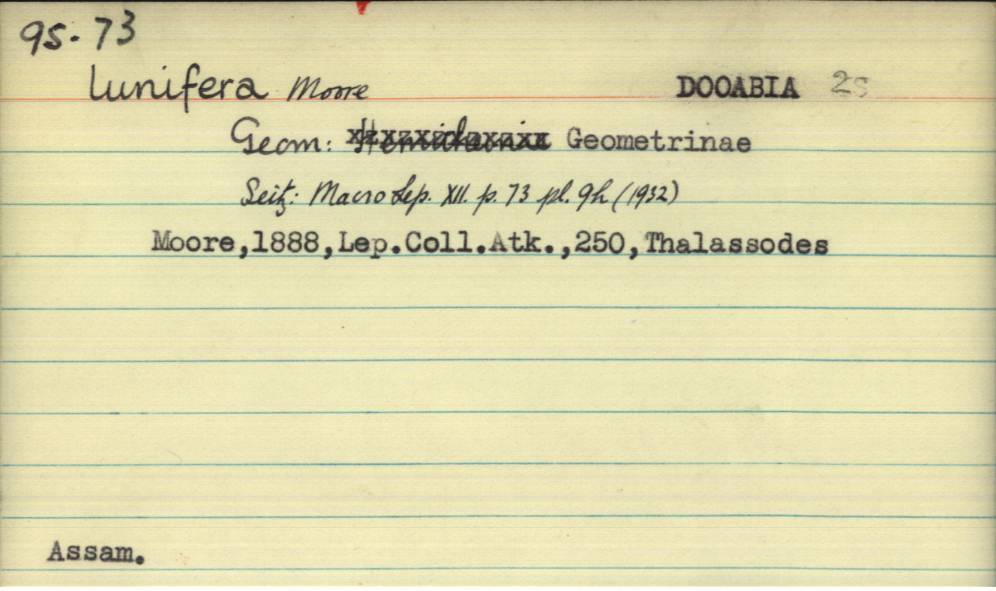 95.73
lunifera Moore DOOABIA 2s
Geom: Geometrinae
Seitz: Macrolep. XII. p. 73 pl. 9h (1932)
Moore,1888,Lep.Coll.Atk.,250,Thalassodes
Assam.